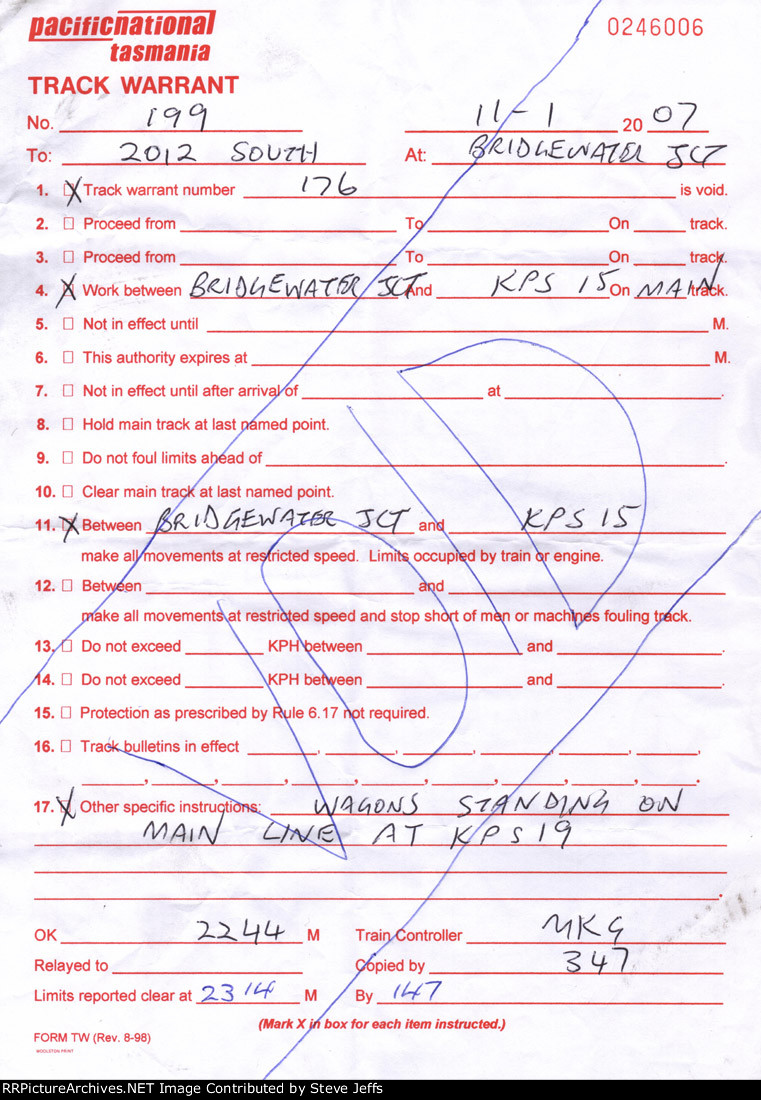 pacificnational 0246006
tasmania
TRACK WARRANT
No. 199 11-1 2007
To: 2012 SOUTH At: BRIDGEWATER JCT
1. X Track warrant number 176 is void.
2. Proceed from To On track.
3. Proceed from To On track.
4. X Work between BRIDGEWATER JCT And KPS 15 On MAIN track.
5. Not in effect until M.
6. This authority expires at M.
7. Not in effect until after arrival of at .
8. Hold main track at last named point.
9. Do not foul limits ahead of .
10. Clear main track at last named point.
11. X Between BRIDGEWATER JCT and KPS 15
make all movements at restricted speed. Limits occupied by train or engine.
12. Between and
make all movements at restricted speed and stop short of men or machines fouling track.
13. Do not exceed KPH between and .
14. Do not exceed KPH between and .
15. Protection as prescribed by Rule 6.17 not required.
16. Track bulletins in effect , , , , , ,
, , , , , , , , .
17. X Other specific instructions: WAGONS STANDING ON
MAIN LINE AT KPS 19
VOID
OK 2244 M Train Controller MKG
Relayed to Copied by 347
Limits reported clear at 2314 M By 147
(Mark X in box for each item instructed.)
FORM TW (Rev. 8-98)
WOOLSTON PRINT
RRPictureArchives.NET Image Contributed by Steve Jeffs